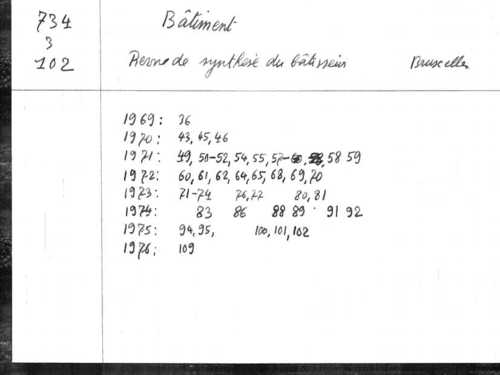 734
3
102
Bâtiment
Revue de synthèse du bâtisseur Bruxelles
1969: 36
1970: 43, 45, 46
1971: 49, 50-52, 54, 55, 58 59
1972: 60, 61, 62, 64, 65, 68, 69, 70
1973: 71-74 76, 77 80, 81
1974: 83 86 88 89 91 92
1975: 94, 95, 100, 101, 102
1976: 109